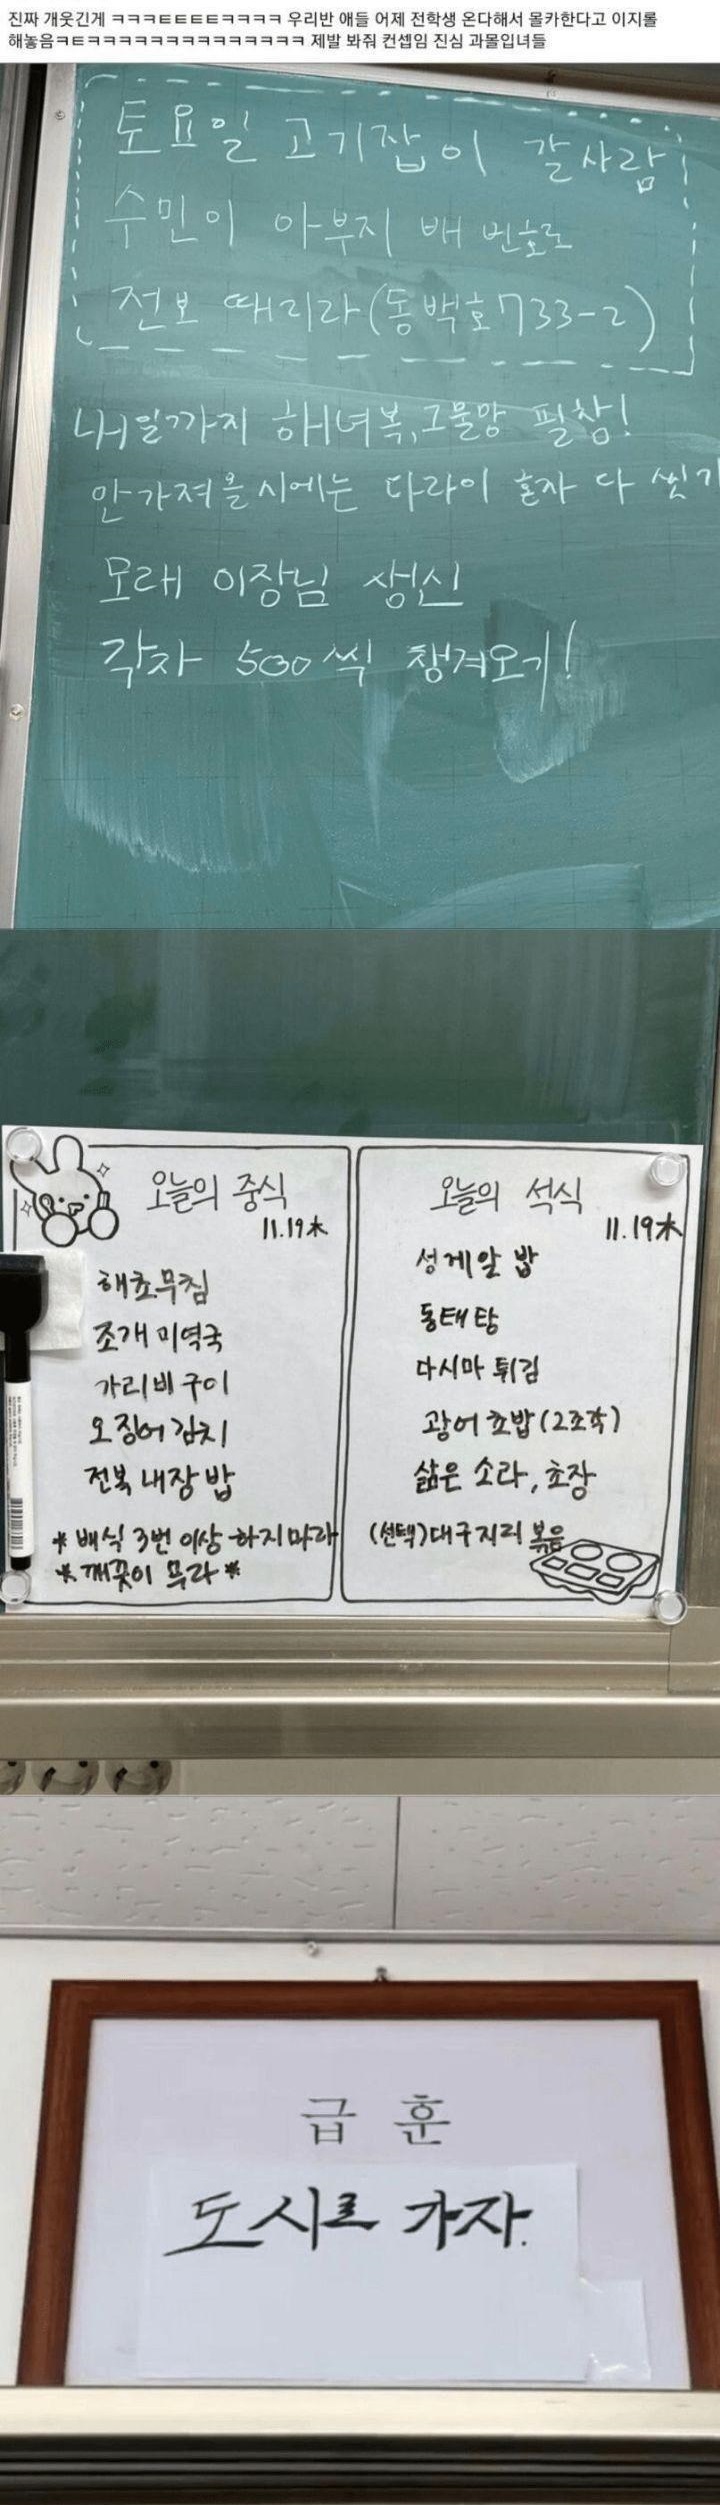 진짜 개웃긴게 ㅋㅋㅋㅌㅌㅌㅌㅋㅋㅋㅋ 우리반 애들 어제 전학생 온다해서 몰카한다고 이지롤
해놓음ㅋㅌㅋㅋㅋㅋㅋㅋㅋㅋㅋㅋㅋㅋㅋㅋ 제발 봐줘 컨셉임 진심 과몰입녀들
토요일 고기잡이 갈사람
수민이 아부지 배 번호로
전보 때리라(동백호733-2)
내일까지 해녀복,그물망 필참!
안가져올시에는 다라이 혼자 다 씻기
모래 이장님 생신
각자 500씩 챙겨오기!
오늘의 중식
11.19木
해초무침
조개미역국
가리비구이
오징어김치
전복내장밥
*배식 3번이상 하지마라
*깨끗이 무라*
오늘의 석식
11.19木
성게알밥
동태탕
다시마튀김
광어초밥(2조각)
삶은 소라,초장
(선택)대구지리볶음
급훈
도시로 가자.